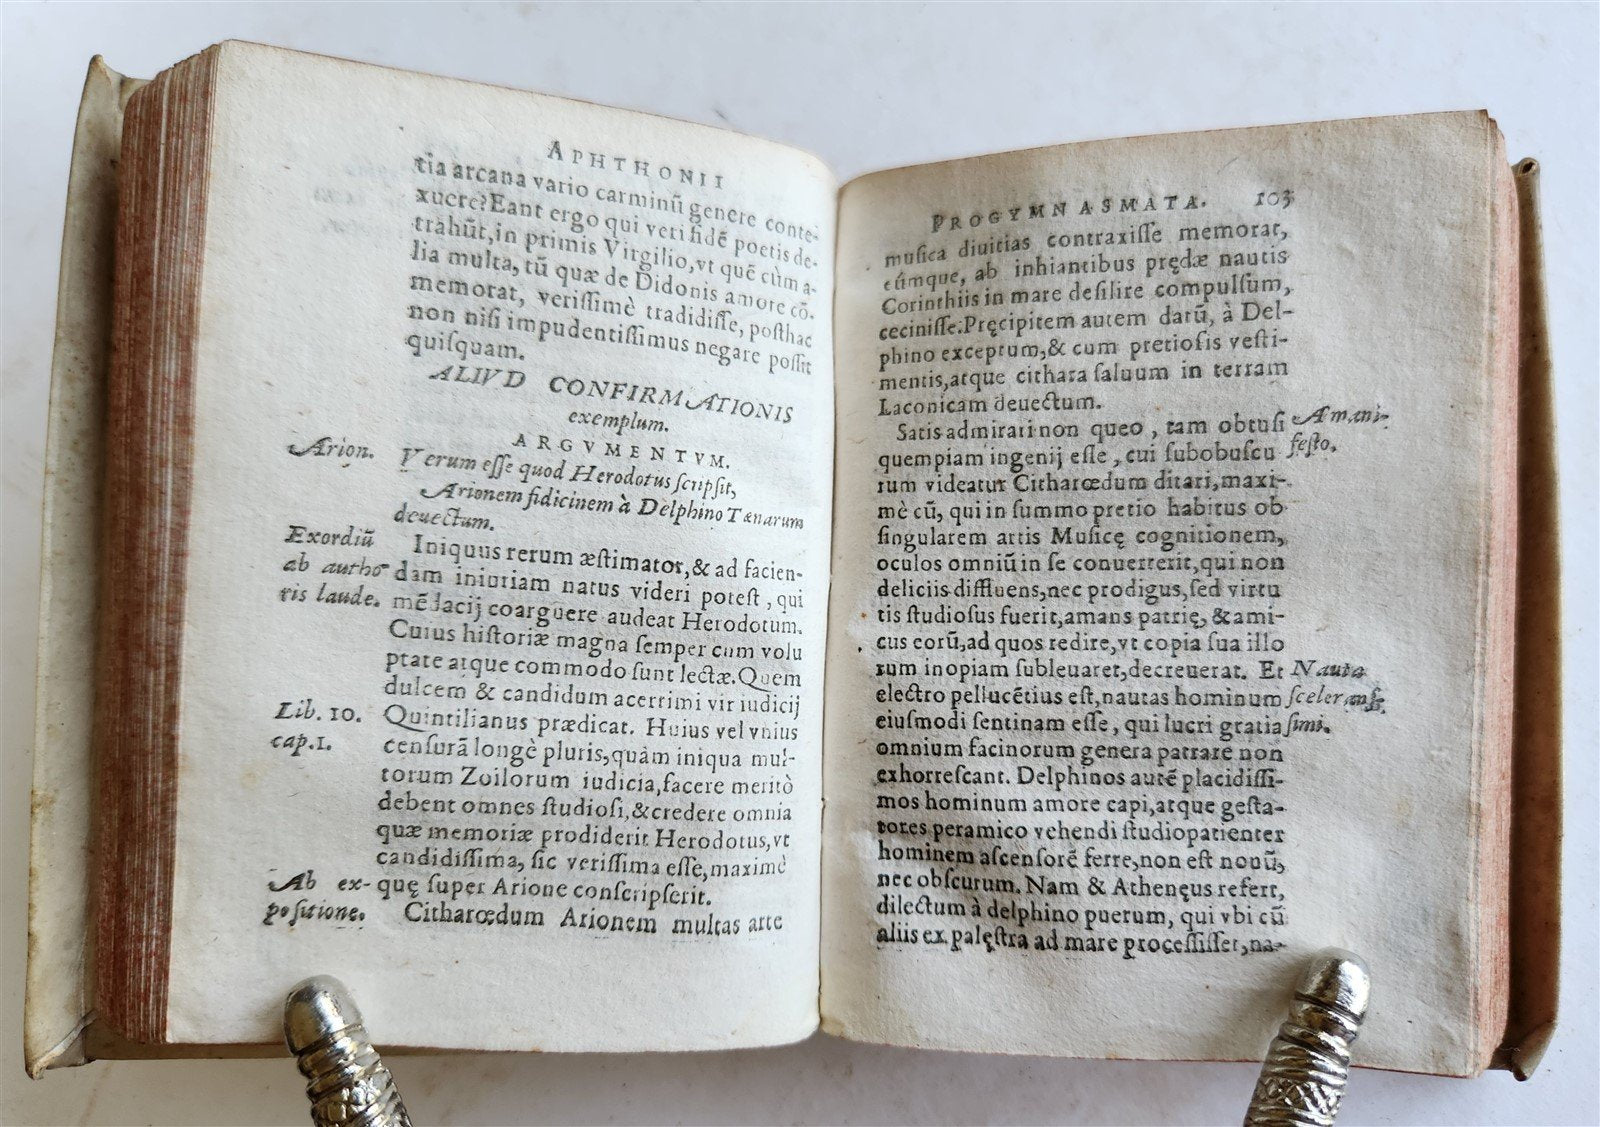 APHTHONII
tia arcana vario carminũ genere conte-
xuere? Eant ergo qui veri fidẽ poetis de-
trahũt, in primis Virgilio, vt quẽ cùm a-
lia multa, tũ quæ de Didonis amore cõ-
memorat, verissimè tradidisse, posthac
non nisi impudentissimus negare possit
quisquam.
ALIVD CONFIRMATIONIS
exemplum.
ARGVMENTVM.
Arion. Verum esse quod Herodotus scripsit,
Arionem fidicinem à Delphino Tænarum
deuectum.
Exordiũ Iniquus rerum æstimator, & ad facien-
ab autho- dam iniuriam natus videri potest, qui
ris laude. mẽdacij coarguere audeat Herodotum.
Cuius historiæ magna semper cum volu
ptate atque commodo sunt lectæ. Quem
dulcem & candidum acerrimi vir iudicij
Lib. 10. Quintilianus prædicat. Huius vel vnius
cap. 1. censurã longè pluris, quàm iniqua mul-
torum Zoilorum iudicia, facere meritò
debent omnes studiosi, & credere omnia
quæ memoriæ prodiderit Herodotus, vt
candidissima, sic verissima esse, maximè
Ab ex- quę super Arione conscripserit.
positione. Citharœdum Arionem multas arte
PROGYMNASMATA. 103
musica diuitias contraxisse memorat,
eúmque, ab inhiantibus prędæ nautis
Corinthiis in mare desilire compulsum,
cecinisse. Pręcipitem autem datũ, à Del-
phino exceptum, & cum pretiosis vesti-
mentis, atque cithara saluum in terram
Laconicam deuectum.
Satis admirari non queo, tam obtusi A mani-
quempiam ingenij esse, cui subobuscu festo.
rum videatur Citharœdum ditari, maxi-
mè cũ, qui in summo pretio habitus ob
singularem artis Musicę cognitionem,
oculos omniũ in se conuerterit, qui non
deliciis diffluens, nec prodigus, sed virtu
tis studiosus fuerit, amans patrię, & ami-
cus eorũ, ad quos redire, vt copia sua illo
rum inopiam subleuaret, decreuerat. Et Nauta
electro pellucẽtius est, nautas hominum sceleratis-
eiusmodi sentinam esse, qui lucri gratia simi.
omnium facinorum genera patrare non
exhorrescant. Delphinos autẽ placidissi-
mos hominum amore capi, atque gesta-
tores peramico vehendi studio patienter
hominem ascensorẽ ferre, non est nouũ,
nec obscurum. Nam & Athenęus refert,
dilectum à delphino puerum, qui vbi cũ
aliis ex palęstra ad mare processisset, na-